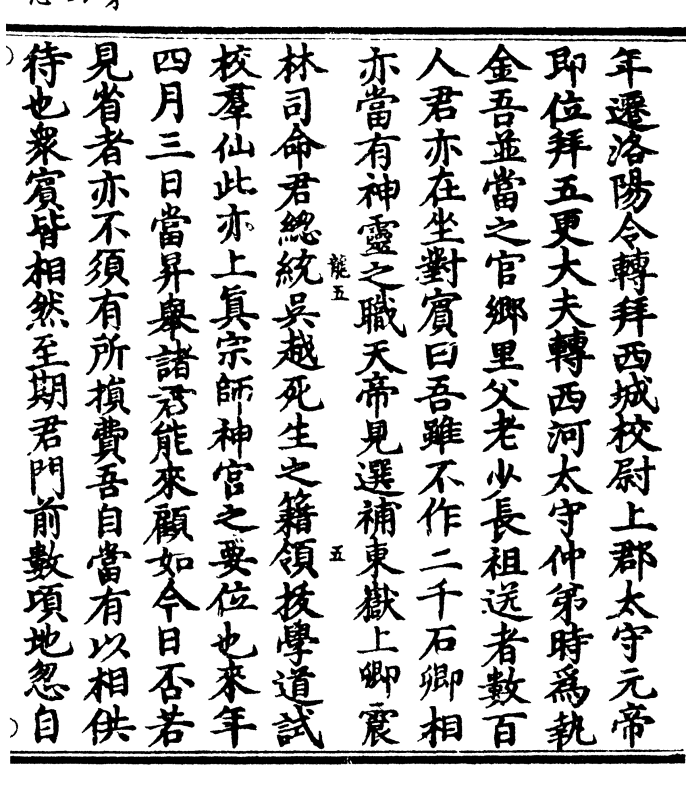 年遷洛陽令轉拜西城校尉上郡太守元帝
即位拜五更大夫轉西河太守仲弟時爲執
金吾並當之官鄉里父老少長祖送者數百
人君亦在坐對賓曰吾雖不作二千石卿相
亦當有神靈之職天帝見選補東嶽上卿震
龍五
五
林司命君總統吳越死生之籍領技學道試
校羣仙此亦上眞宗師神官之要位也來年
四月三日當昇舉諸君能來顧如今日否若
見省者亦不須有所損費吾自當有以相供
待也衆賓皆相然至期君門前數頃地忽自